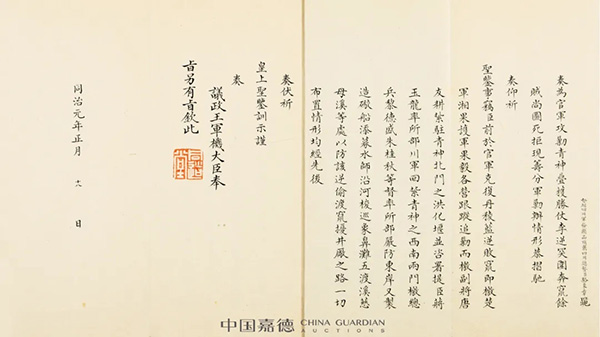 奏為官軍攻勦青神疊獲勝仗李逆突圍奔竄餘
賊尚圖死拒現籌分軍勦辦情形恭摺馳
奏仰祈
聖鑒事竊臣前於官軍克復丹稜藍逆敗竄即檄楚
軍湘果護軍果毅各營跟蹤追勦而檄副將唐
友耕紮駐青神北門之洪化堰並咨署提臣蔣
玉龍率所部川軍回紮青神之西南兩門檄總
兵黎德盛朱桂秋等督率所部嚴防東岸又製
造礮船添募水師沿河梭巡象鼻灘五渡溪慈
母溪等處以防該逆偷渡竄擾井廠之路一切
布置情形均經先後
奏伏祈
皇上聖鑒訓示謹
奏
議政王軍機大臣奉
旨另有旨欽此
同治元年正月 日
中国嘉德 CHINA GUARDIAN
AUCTIONS